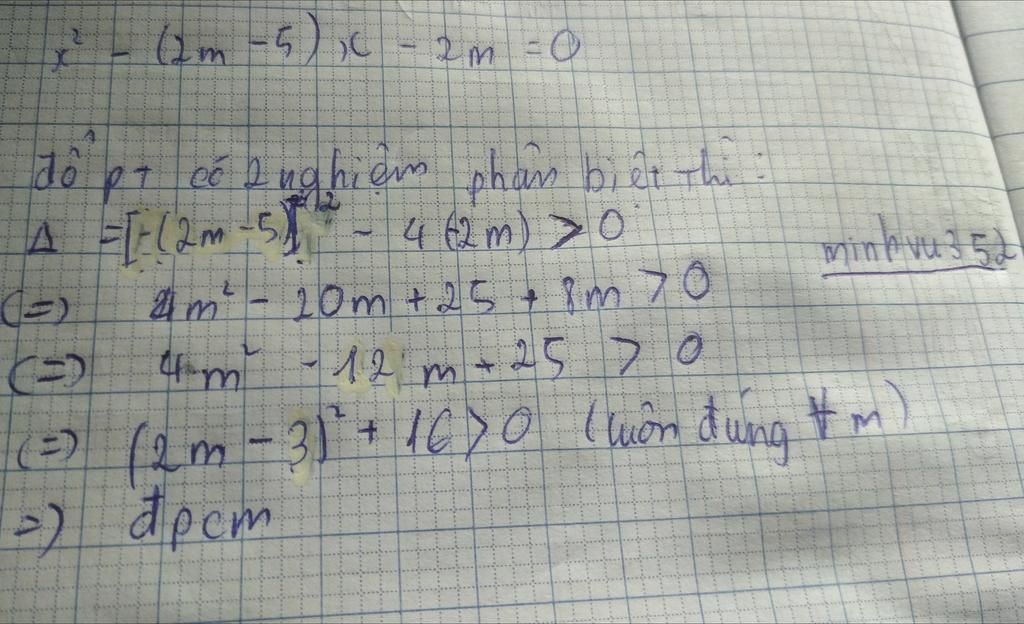 x² - (2m - 5)x - 2m = 0
để pt có 2 nghiệm phân biệt thì:
Δ = [-(2m - 5)]² - 4(-2m) > 0
minhvu352
(=) 4m² - 20m + 25 + 8m > 0
(=) 4m² - 12m + 25 > 0
(=) (2m - 3)² + 16 > 0 (luôn đúng ∀ m)
=) đpcm